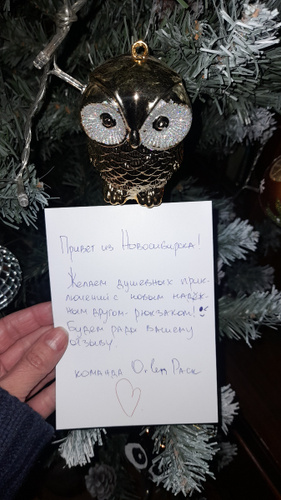 Привет из Новосибирска!
Желаем душевных прик-
лючений с новым надёж-
ным другом-рюкзаком!
Будем рады вашему
отзыву
команда O.len Pack